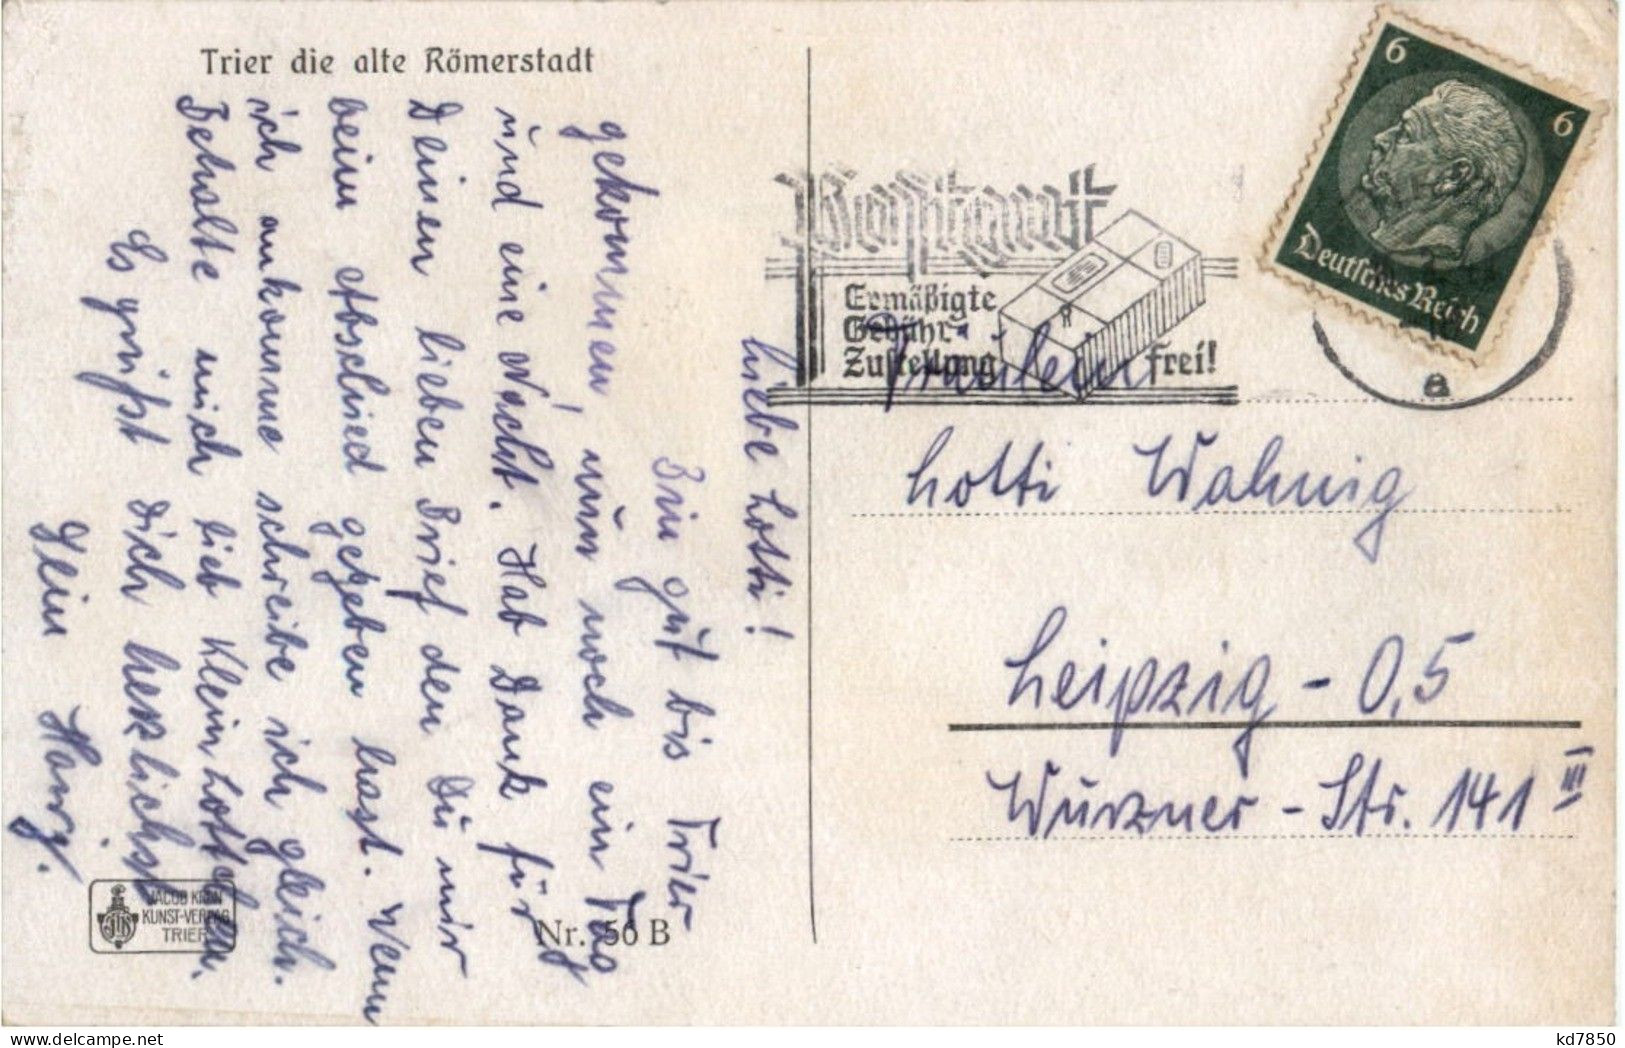 Trier die alte Römerstadt
Liebe Lotti!
Bin gut bis Trier
gekommen, nun noch ein Tag
und eine Nacht. Hab Dank für
Deinen lieben Brief den Du mir
beim Abschied gegeben hast. Wenn
ich ankomme schreibe ich gleich.
Behalte mich lieb Klein Lottchen.
Es grüßt Dich herzlichst
Dein
JACOB KUNST-VERLAG
TRIER
Nr. 56 B
Ermäßigte
Gebühr-
Zustellung frei!
6
6
Deutsches Reich
a
Fräulein
Lotti Wahnig
Leipzig - O,5
Wurzner - Str. 141 III
kd7850